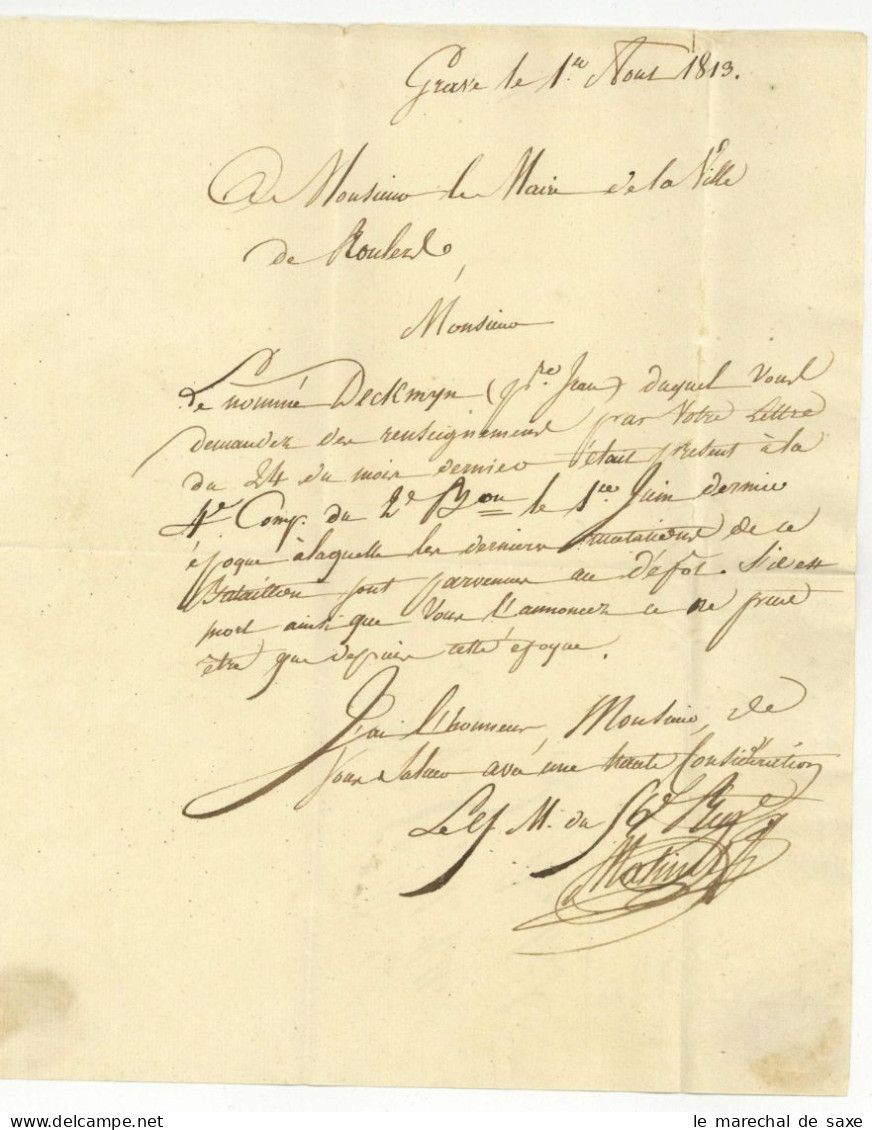 Grave le 1.er Aout 1813.
A Monsieur le Maire de la Ville
de Roulers
Monsieur
Le nommé Deckmyn (p.re Jean) duquel Vous
demandez des renseignemens par Votre Lettre
du 24 du mois dernier était présent à la
4e Comp. du 2e Bon le 1.er Juin dernier
époque à laquelle les dernieres mutations de ce
Bataillon sont parvenues au dépôt. S'il est
mort ainsi que Vous l'annoncez ce ne peut
être que depuis cette époque.
J'ai l'honneur, Monsieur, de
Vous Saluer avec une haute Considération
Le Q M. du 56e Reg.
le marechal de saxe